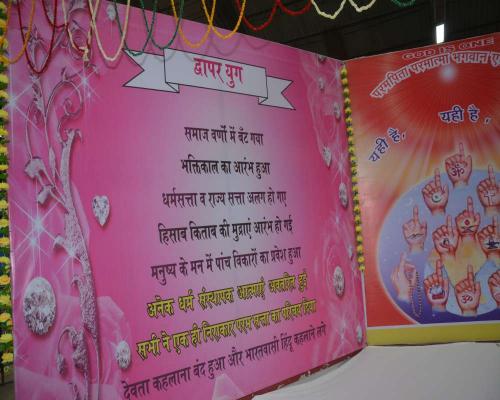 द्वापर युग
समाज वर्णो में बँट गया
भक्तिकाल का आरंभ हुआ
धर्मसत्ता व राज्य सत्ता अलग हो गए
हिसाब किताब की मुद्राएं आरंभ हो गई
मनुष्य के मन में पांच विकारों का प्रवेश हुआ
अनेक धर्म संस्थापक आत्माएं अवतरित हुई
सभी ने एक ही निराकार परम सत्ता का परिचय दिया
देवता कहलाना बंद हुआ और भारतवासी हिंदू कहलाने लगे
GOD IS ONE
परमपिता परमात्मा भगवान
यही है,
यही है,